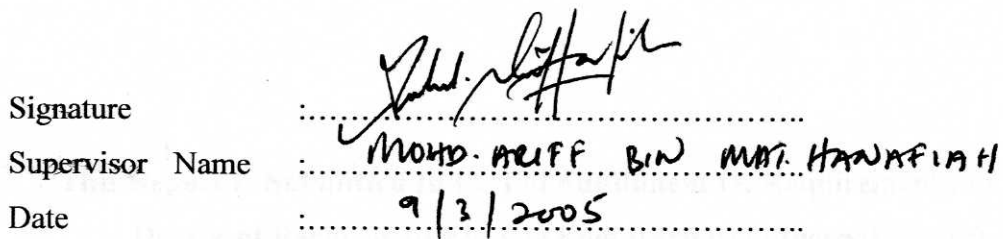 Signature :
Supervisor Name : MOHD. ARIFF BIN MAT. HANAFIAH
Date : 9/3/2005